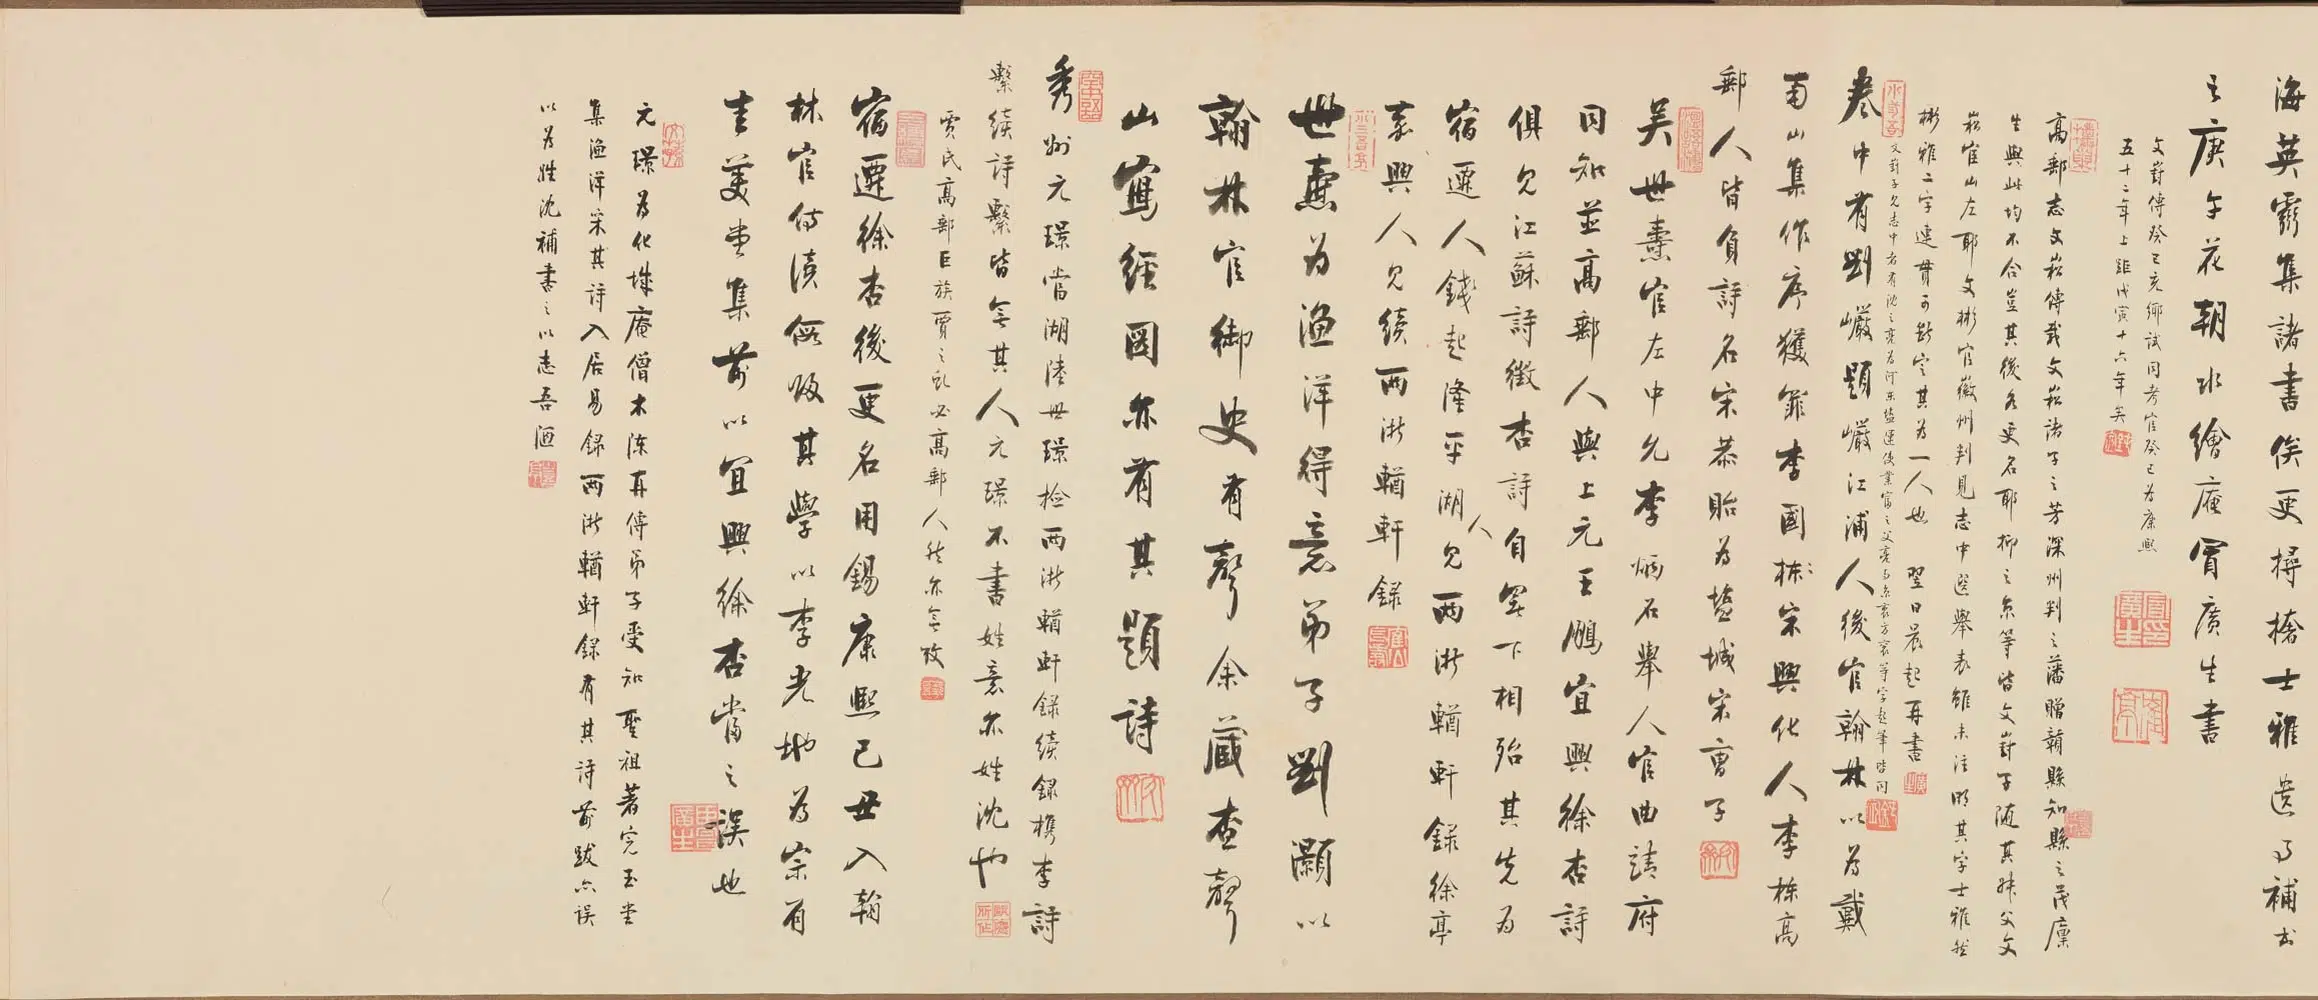 海英靈集諸書俟更擣搶士雅遺事補書
之庚午花朝水繪庵冒廣生書
文嵙傳癸巳充鄉試同考官癸巳為康熙
五十二年上距戊寅十六年矣
高郵志文崧傳載文崧諸子之芳深州判之藩贈贛縣知縣之茂廩
生與此均不合豈其後各更名耶抑之京等皆文嵙子隨其叔父文
崧官山左耶文彬官徽州判見志中選舉表雖未注明其字士雅然
彬雅二字連貫可斷定其為一人也 翌日晨起再書
文嵙子見志中者有沈之亮為河東鹽運使業富之父亮與京衷方襄等字起筆皆同
卷中有劉巖題巖江浦人後官翰林以為戴
南山集作序獲罪李國棟宋興化人李棟高
郵人皆負詩名宋恭貽為鹽城宋曹子
吳世燾官左中允李炳石舉人官曲靖府
同知並高郵人與上元王鵬宜興徐杏詩
俱見江蘇詩徵杏詩自署下相殆其先為
宿遷人錢起隆平湖人見兩浙輶軒錄徐亭
嘉興人見續兩浙輶軒錄
世燾為漁洋得意弟子劉灝以
翰林官御史有聲余藏查聲
山寫經圖亦有其題詩
秀州元璟當湖陸毋璟檢兩浙輶軒錄續錄檇李詩
繫續詩繫皆無其人元璟不書姓意亦姓沈也
賈氏高郵巨族賈之彪必高郵人然亦無攷
宿遷徐杏後更名用錫康熙己丑入翰
林官侍讀假歸其學以李光地為宗有
圭美堂集前以宜興徐杏當之誤也
元璟為化城庵僧木陳再傳弟子受知聖祖著完玉堂
集漁洋采其詩入居易錄兩浙輶軒錄有其詩前跋亦誤
以為姓沈補書之以志吾過